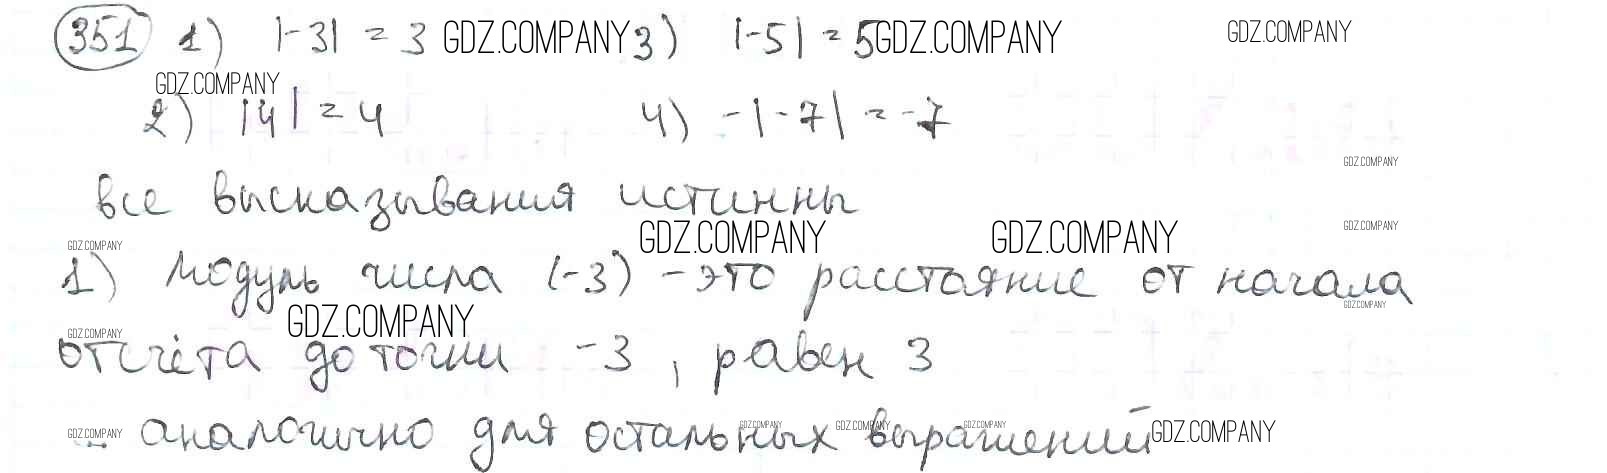 351 1) |-3| = 3 GDZ.COMPANY 3) |-5| = 5 GDZ.COMPANY GDZ.COMPANY
GDZ.COMPANY
2) |4| = 4 4) -|-7| = -7
GDZ.COMPANY
все высказывания истинны
GDZ.COMPANY GDZ.COMPANY GDZ.COMPANY
GDZ.COMPANY
1) Модуль числа (-3) - это расстояние от начала
GDZ.COMPANY GDZ.COMPANY
GDZ.COMPANY
отсчёта до точки -3, равен 3
GDZ.COMPANY аналогично для остальных выражений GDZ.COMPANY
GDZ.COMPANY GDZ.COMPANY GDZ.COMPANY